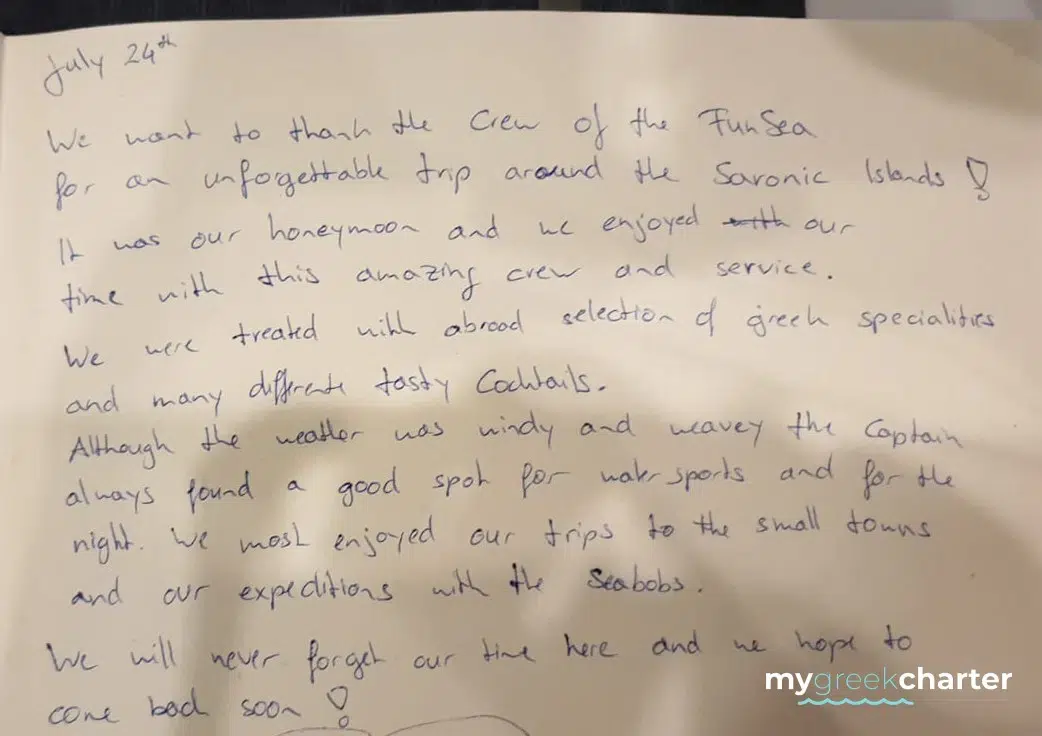 July 24th
We want to thank the Crew of the FunSea
for an unforgettable trip around the Saronic Islands!
It was our honeymoon and we enjoyed with our
time with this amazing crew and service.
We were treated with abroad selection of greek specialities
and many differente tasty Cocktails.
Although the weather was windy and weavey the Captain
always found a good spot for water sports and for the
night. We most enjoyed our trips to the small towns
and our expeditions with the Seabobs.
We will never forget our time here and we hope to
come back soon!
mygreekcharter